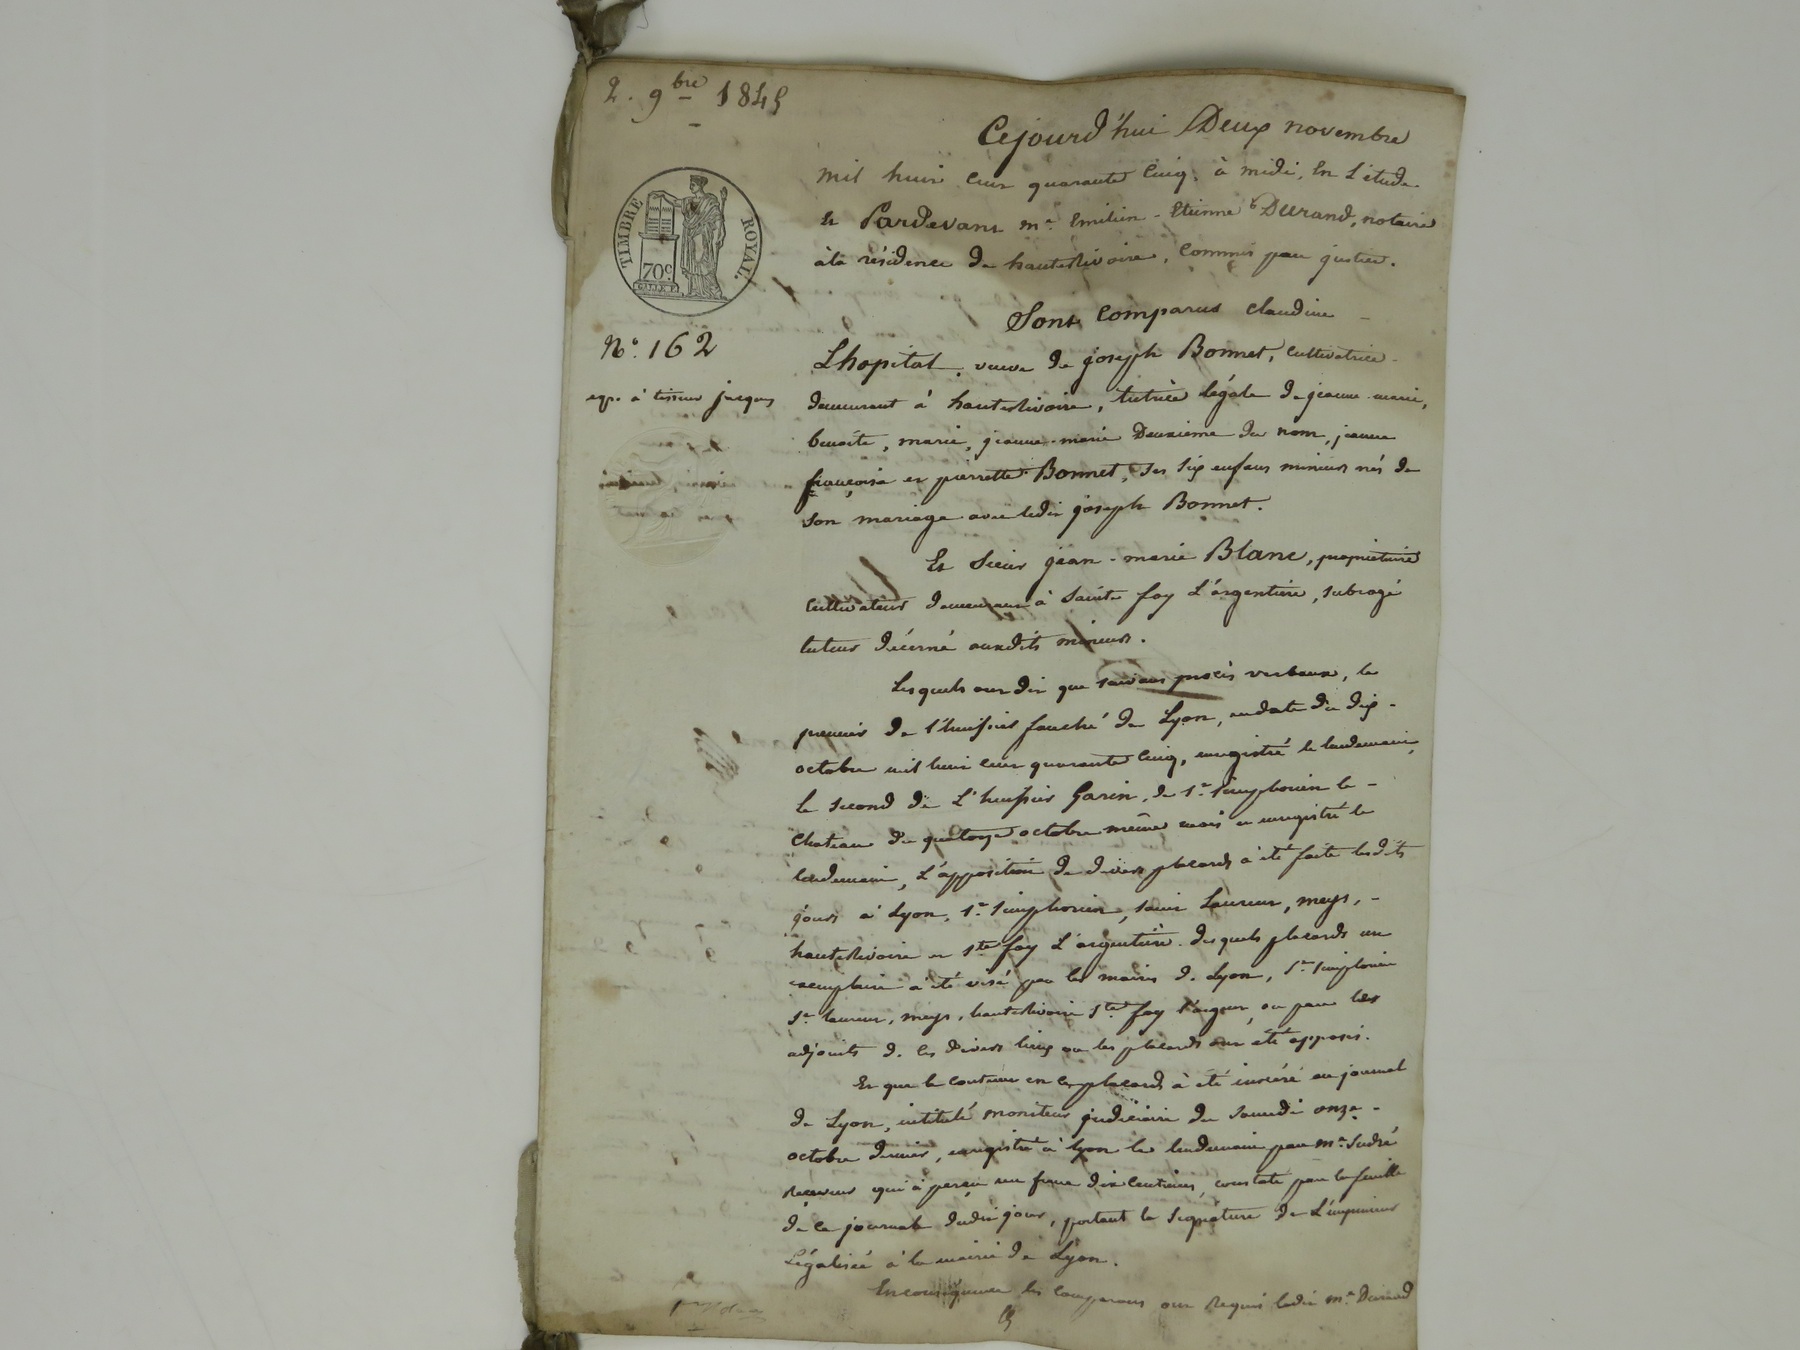 2. 9bre 1845
Cejourd'hui Deux novembre
mil huit cent quarante cinq, à midi, en L'étude
et Pardevant me. Emilien-Etienne Durand, notaire
à la résidence de hauterivoire, commis par justice.
TIMBRE ROYAL.
70c
Sont comparus claudine
N°. 162
Lhopital, veuve de joseph Bonnet, cultivatrice
exp. à tisseur jacques
demeurant à hauterivoire, tutrice légale de jeanne-marie,
benoite, marie, jeanne-marie Deuxième du nom, jeanne
françoise et pierrette Bonnet, ses six enfans mineurs nés de
son mariage avec ledit joseph Bonnet.
Et Sieur jean-marie Blanc, propriétaire
cultivateur demeurant à Sainte foy L'argentière, subrogé
tuteur décerné auxdits mineurs.
Lesquels ont dit que suivant procès verbaux, le
premier de l'huissier fauché de Lyon, en date du dix
octobre mil huit cent quarante cinq, enregistré le lendemain,
le second de L'huissier Garin, de St. simphorien le
Chateau du quatorze octobre même mois et enregistré le
lendemain, L'apposition de divers placards à été faite lesdits
jours à Lyon, St. simphorien, saint Laurent, meys,
hauterivoire et Ste foy L'argentière. desquels placards un
exemplaire à été visé par les maires de Lyon, St. simphorien
St. laurent, meys, hauterivoire Ste foy l'argent, ou par les
adjoints de ces divers lieux ou les placards ont été apposés.
Et que le contenu en ces placards à été inséré au journal
de Lyon, intitulé moniteur judiciaire du samedi onze
octobre dernier, enregistré à lyon le lendemain par mr.
Receveur qui à perçu un franc dix centimes, constaté par la feuille
de ce journal dudit jour, portant la signature de L'imprimeur
Légalisée à la mairie de Lyon.
En conséquence les comparans ont Requis ledit me. Durand